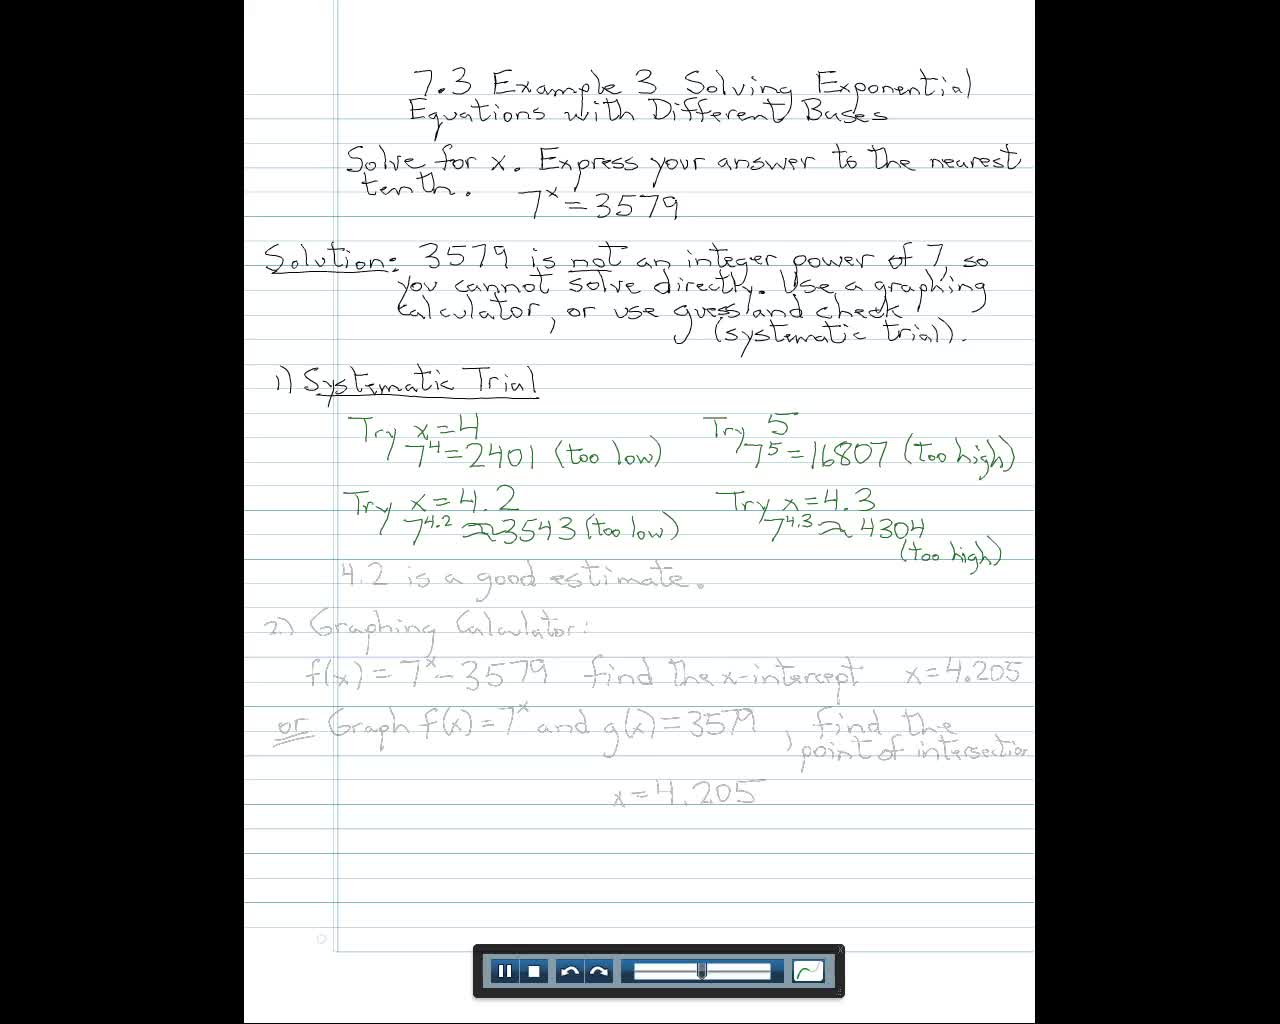 7.3 Example 3 Solving Exponential
Equations with Different Bases
Solve for x. Express your answer to the nearest
tenth. 7^x = 3579
Solution: 3579 is not an integer power of 7, so
you cannot solve directly. Use a graphing
calculator, or use guess and check
(systematic trial).
1) Systematic Trial
Try x=4
7^4 = 2401 (too low)
Try 5
7^5 = 16807 (too high)
Try x=4.2
7^4.2 ≈ 3543 (too low)
Try x=4.3
7^4.3 ≈ 4304
(too high)
4.2 is a good estimate.
2.) Graphing Calculator:
f(x) = 7^x - 3579 find the x-intercept x=4.205
or Graph f(x) = 7^x and g(x) = 3579, find the
point of intersection
x=4.205